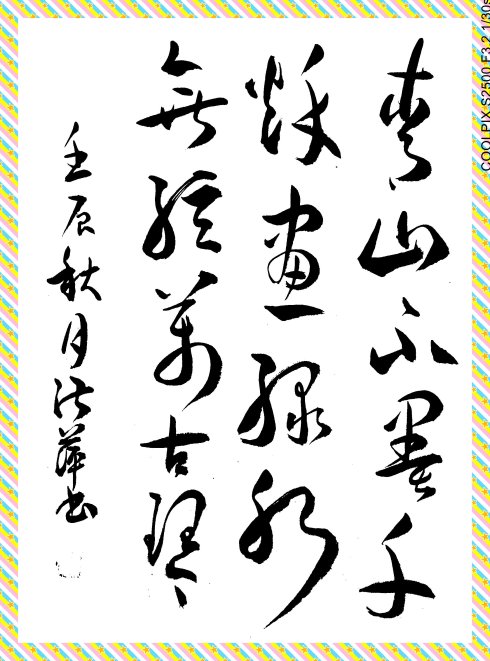 青山不墨千
秌畫綠水
無絃萬古琴
壬辰秋月萍书
COOLPIX S2500 F3.2 1/30s